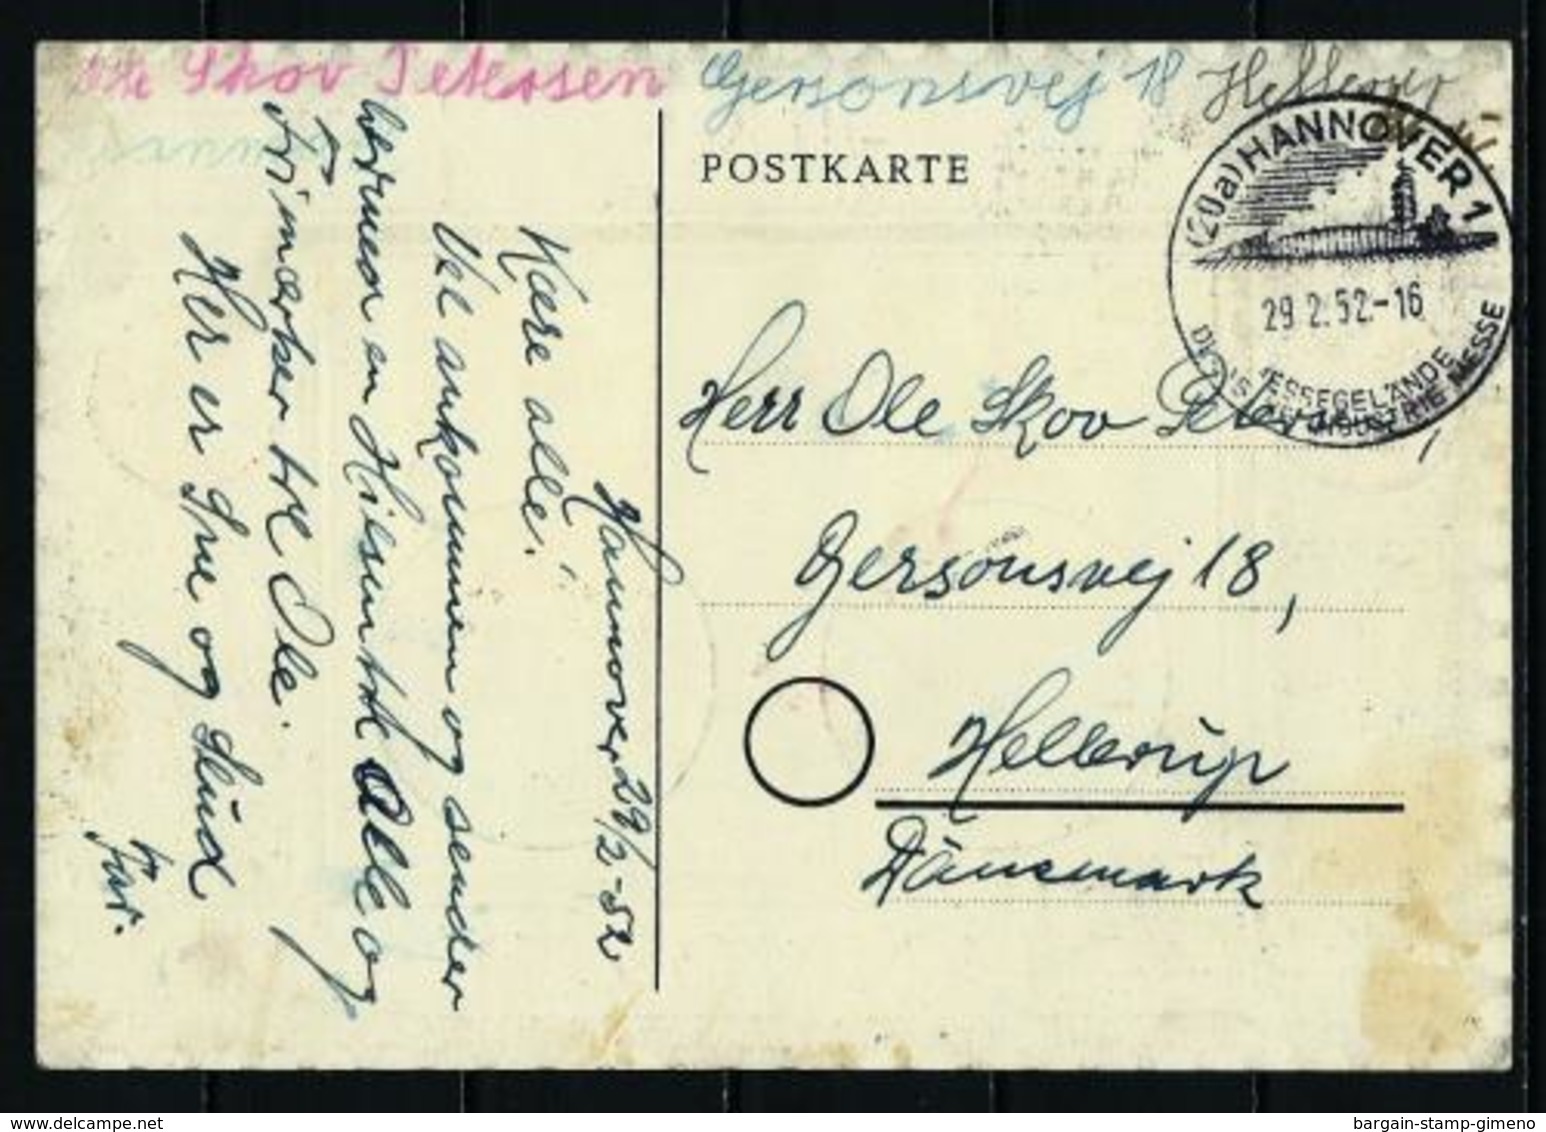 Ole Skov Petersen Gersonsvej 18 Hellerup
POSTKARTE
(20a) HANNOVER 1
29.2.52.-16
MESSEGELÄNDE
INDUSTRIE MESSE
Hannover 29/2-52
Kære alle!
Vel ankommen og sender
hermed en Hilsen til Alle og
Frimærker til Ole.
Her er Sne og Slud
Far.
Herr Ole Skov Petersen,
Gersonsvej 18,
Hellerup
Dänemark
delcampe.net
bargain-stamp-gimeno